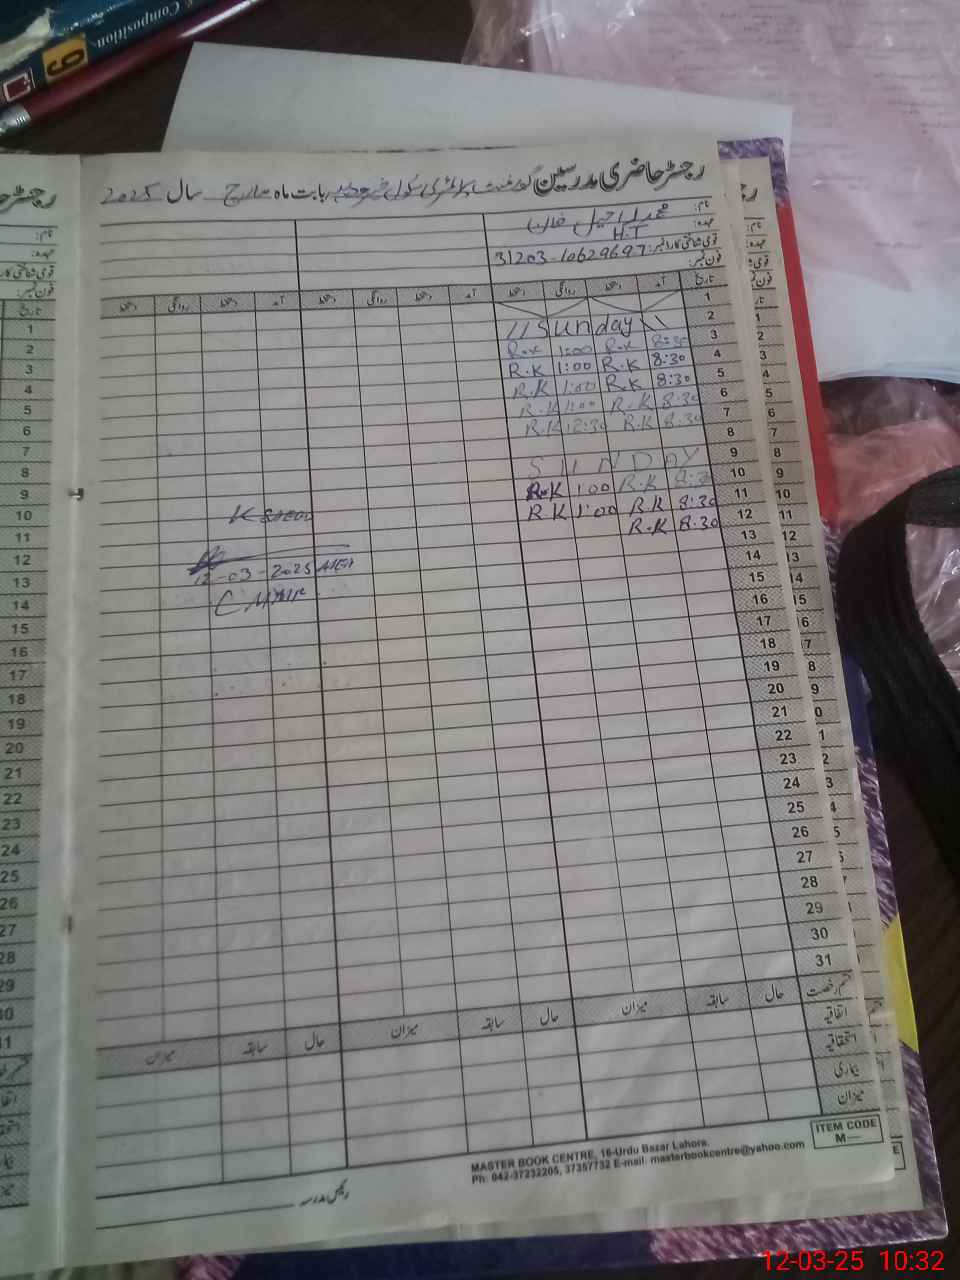 Composition
9
رجسٹر حاضری مدرسین گورنمنٹ پرائمری سکول بابت ماہ مارچ سال 2025
نام: محمد راحیل خان
عہدہ: H.T
قومی شناختی کارڈ نمبر: 31203-10629697
فون نمبر:
تاریخ آمد دستخط روانگی دستخط آمد دستخط روانگی دستخط آمد دستخط روانگی دستخط
1
2 Sunday
3 8:30 R.K 1:00 R.K
4 8:30 R.K 1:00 R.K
5 8:30 R.K 1:00 R.K
6 8:30 R.K 1:00 R.K
7 8:30 R.K 12:30 R.K
8
9 SUNDAY
10 8:30 R.K 1:00 R.K
11 8:30 R.K 1:00 R.K
12 8:30 R.K
13
12-03-2025
14
15
16
17
18
19
20
21
22
23
24
25
26
27
28
29
30
31
قسم رخصت حال سابقہ میزان حال سابقہ میزان حال سابقہ میزان
اتفاقیہ
استحقاقیہ
بیماری
میزان
ITEM CODE
M—
MASTER BOOK CENTRE, 16-Urdu Bazar Lahore.
Ph: 042-37232205, 37357732 E-mail: masterbookcentre@yahoo.com
رئیس مدرسہ
12-03-25 10:32